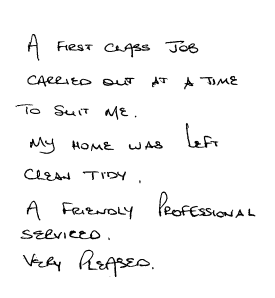 A FIRST CLASS JOB
CARRIED OUT AT A TIME
TO SUIT ME.
MY HOME WAS LEFT
CLEAN TIDY.
A FRIENDLY PROFESSIONAL
SERVICED.
VERY PLEASED.